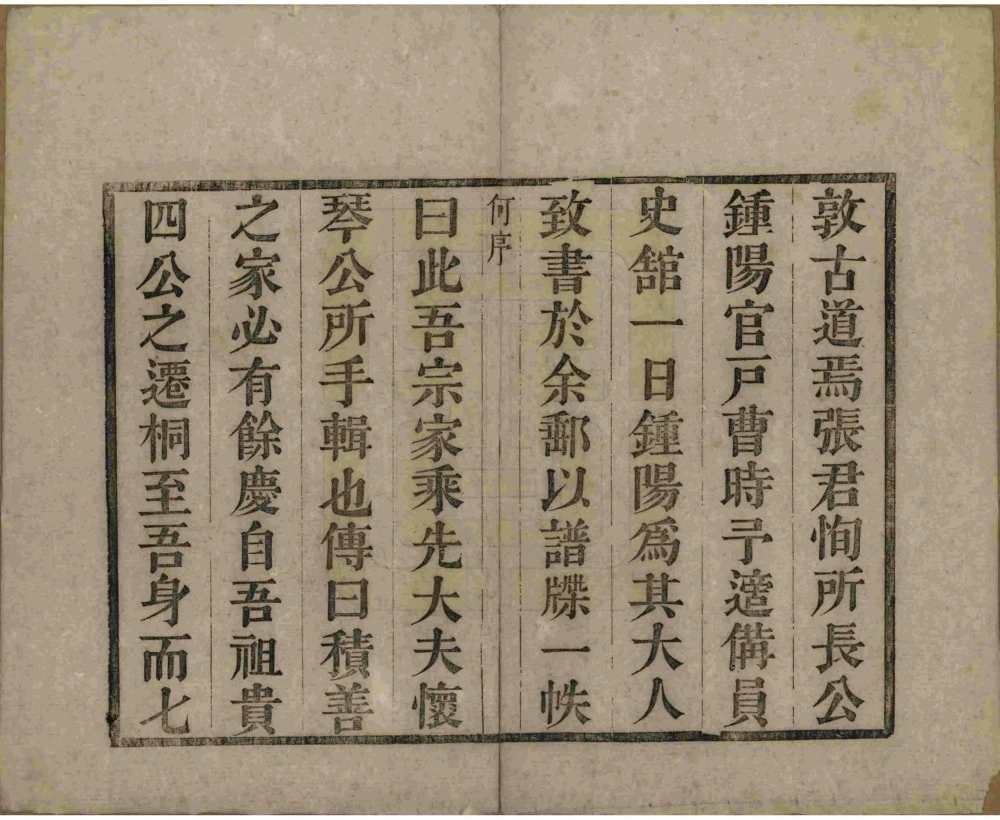 敦古道焉張君恂所長公
鍾陽官戸曹時予遙備員
史館一日鍾陽爲其大人
致書於余郵以譜牒一帙
何序
曰此吾宗家乘先大夫懷
琴公所手輯也傳曰積善
之家必有餘慶自吾祖貴
四公之遷桐至吾身而七